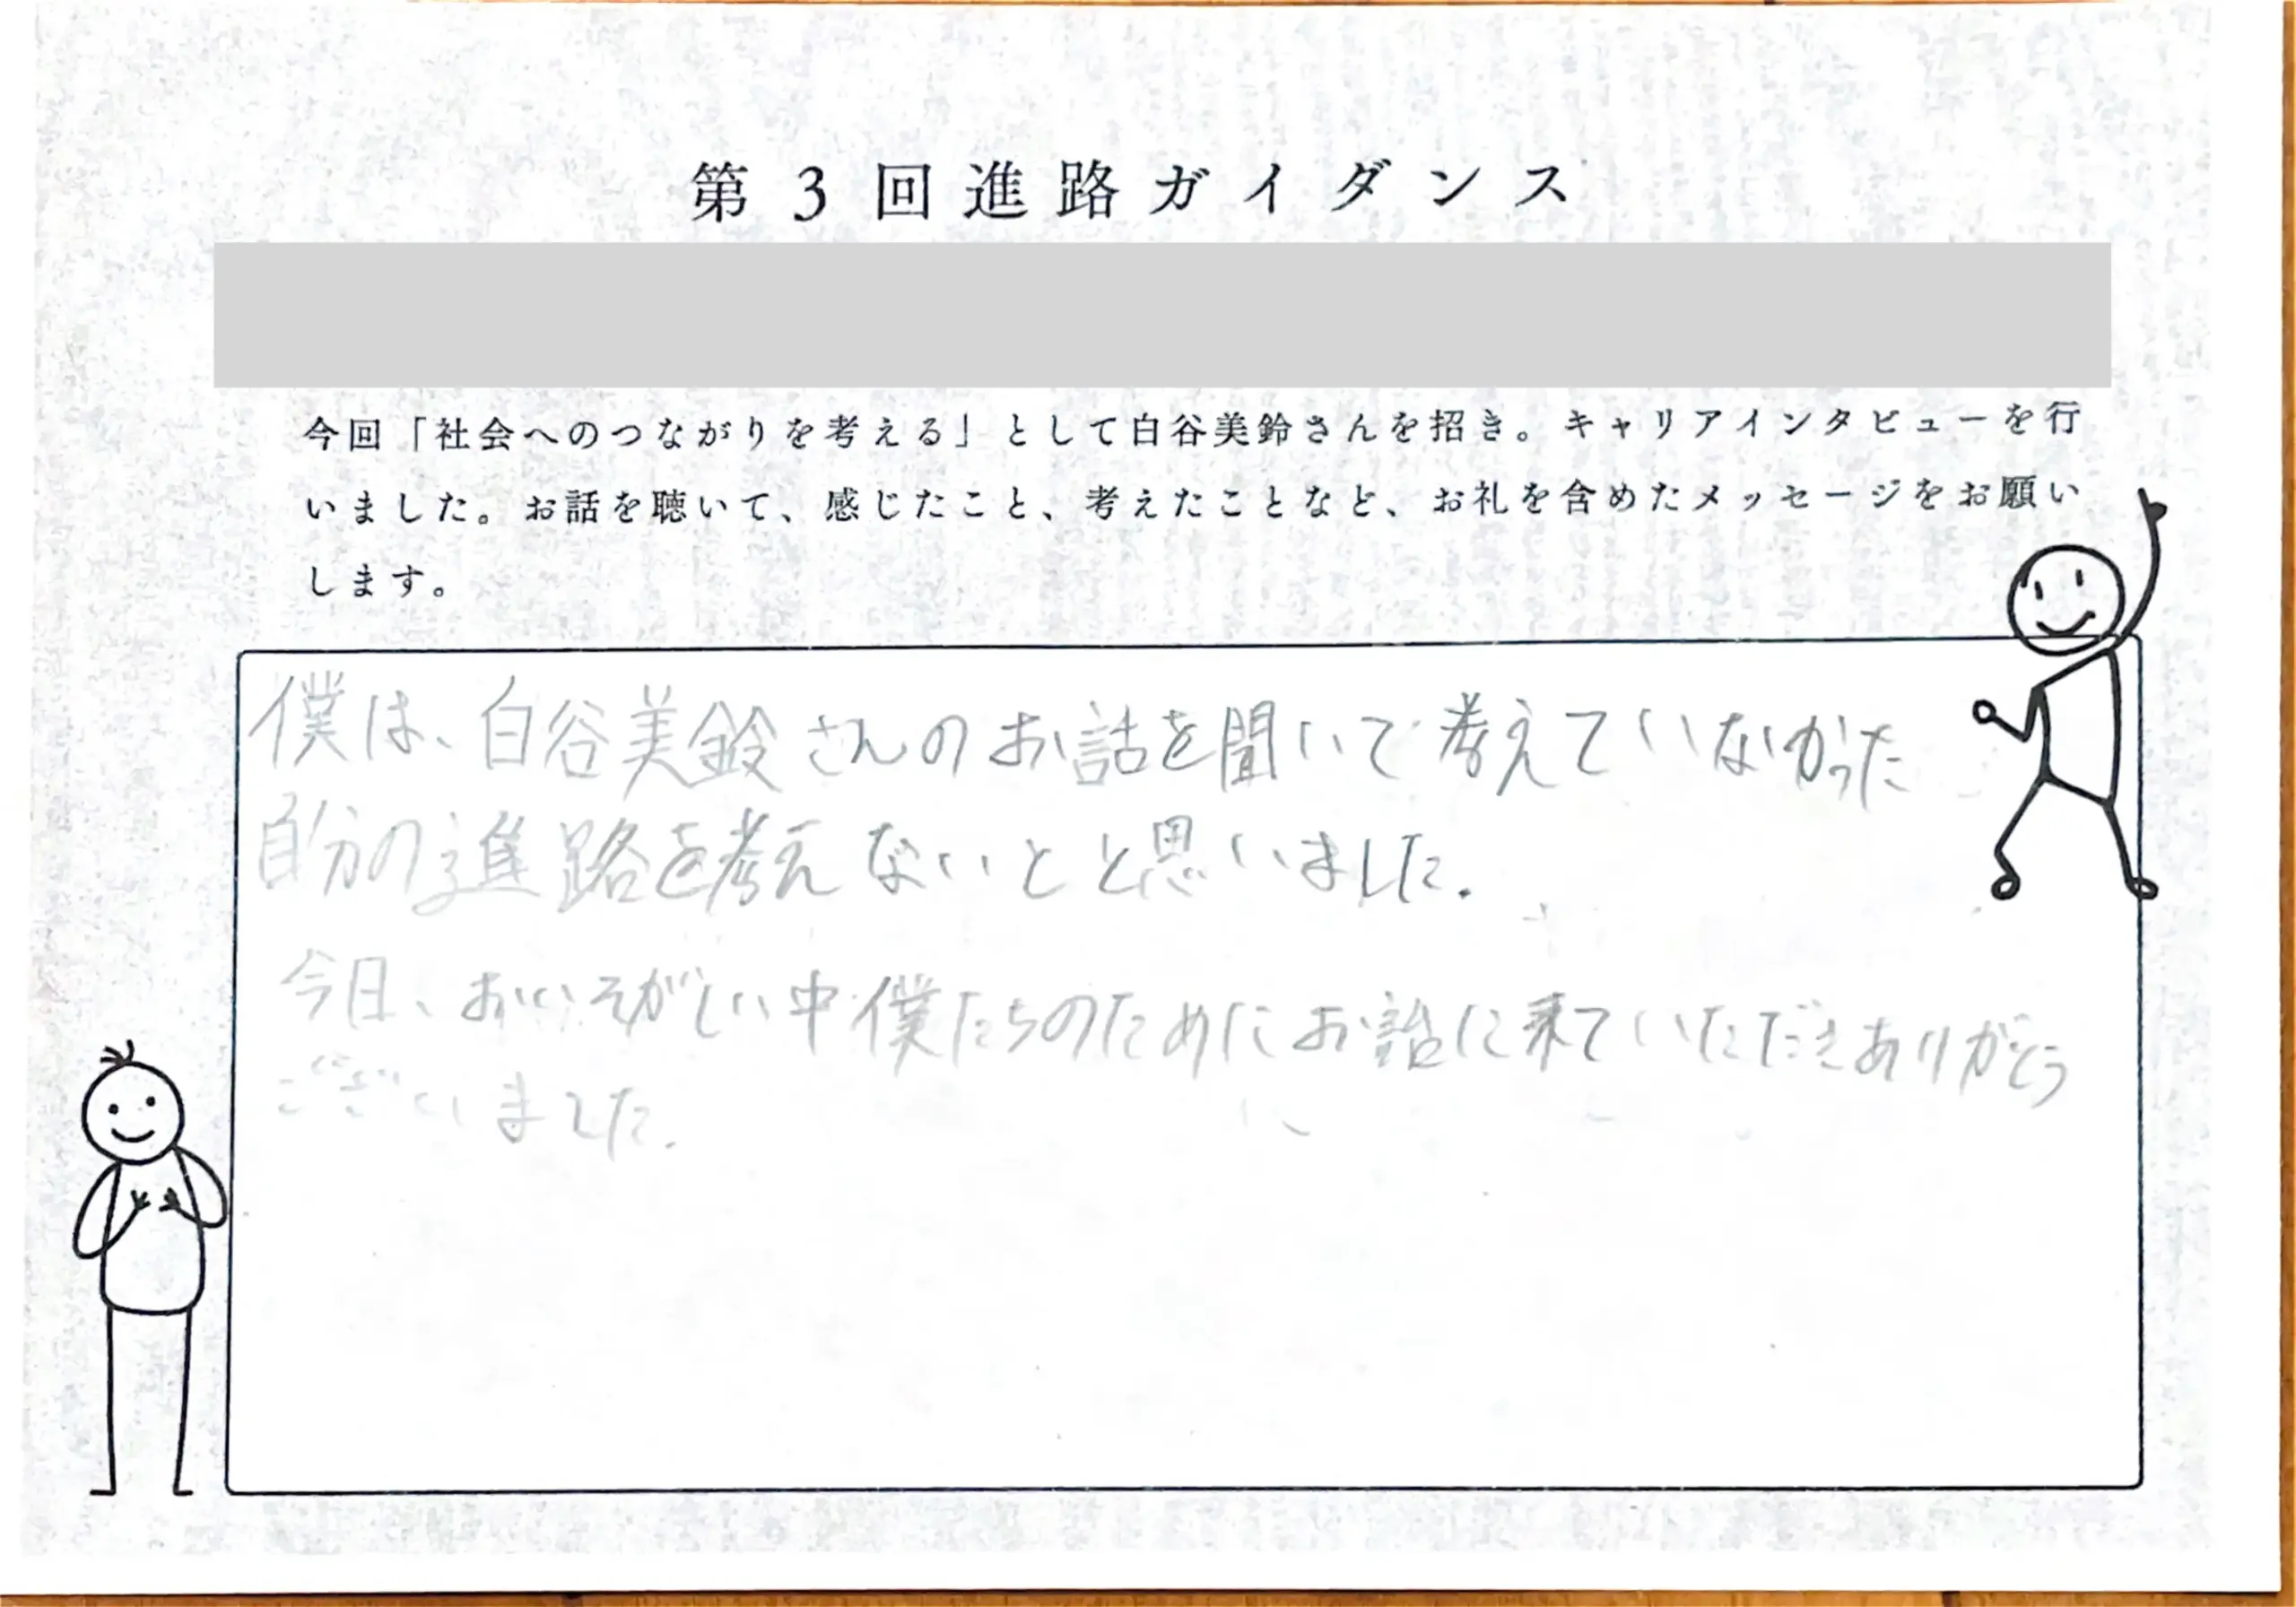 第3回進路ガイダンス
今回「社会へのつながりを考える」として白谷美鈴さんを招き。キャリアインタビューを行
いました。お話を聴いて、感じたこと、考えたことなど、お礼を含めたメッセージをお願い
します。
僕は、白谷美鈴さんのお話を聞いて考えていなかった
自分の進路を考えないとと思いました.
今日、おいそがしい中僕たちのためにお話に来ていただきありがとう
ございました.